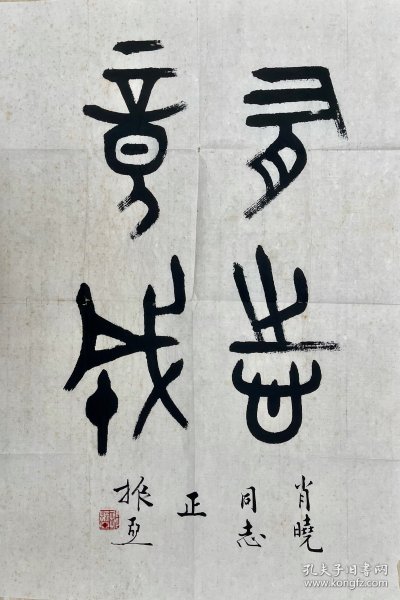 有志
竟成
肖曉
同志
正
振
孔夫子旧书网
www.kongfz.com